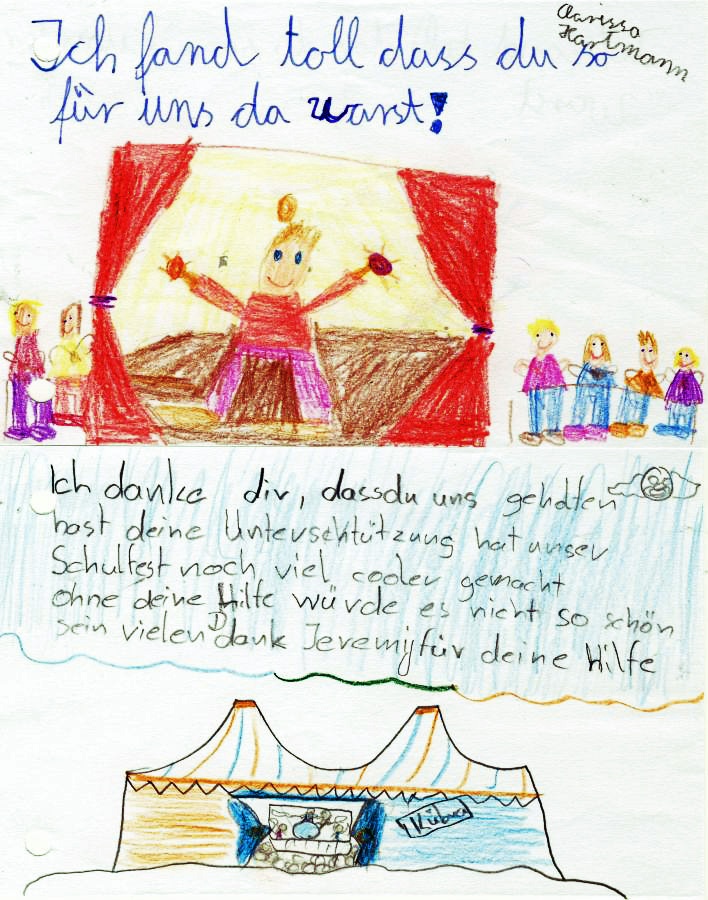 Clarissa
Hartmann
Ich fand toll dass du so
für uns da warst!
Ich danke dir, dassdu uns geholfen
hast deine Unterschtützung hat unser
Schulfest noch viel cooler gemacht
ohne deine Hilfe würde es nicht so schön
sein vielen Dank Jeremy für deine Hilfe
Kübra